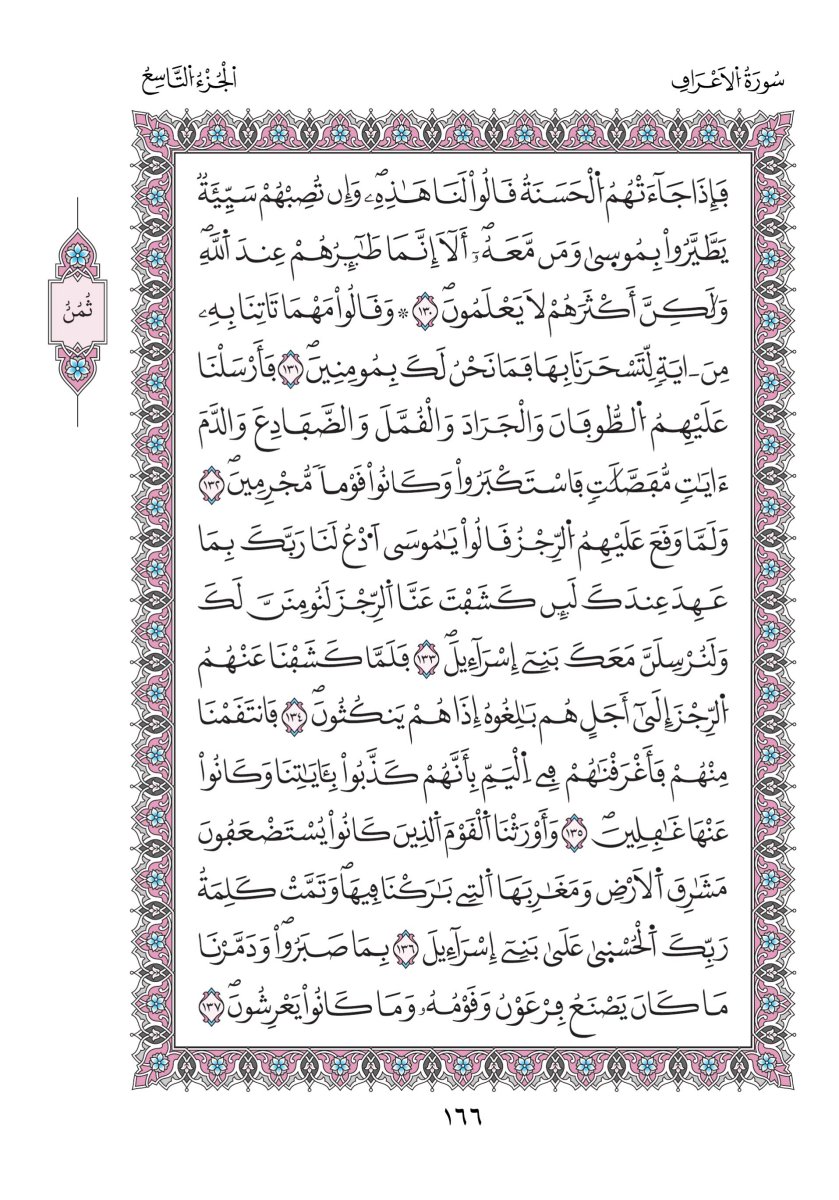 سُورَةُ اُ۬لَاعْرَافِ
اَ۬لْجُزْءُ اُ۬لتَّاسِعُ
فَإِذَا جَآءَتْهُمُ اُ۬لْحَسَنَةُ قَالُواْ لَنَا هَٰذِهِۦۖ وَإِن تُصِبْهُمْ سَيِّئَةٞ
يَطَّيَّرُواْ بِمُوس۪يٰ وَمَن مَّعَهُۥٓۖ أَلَآ إِنَّمَا طَٰٓئِرُهُمْ عِندَ اَ۬للَّهِۖ
وَلَٰكِنَّ أَكْثَرَهُمْ لَا يَعْلَمُونَۖ ١٣٠ ۞ وَقَالُواْ مَهْمَا تَاتِنَا بِهِۦ
مِنَ اٰيَةٖ لِّتَسْحَرَنَا بِهَا فَمَا نَحْنُ لَكَ بِمُومِنِينَۖ ١٣١ فَأَرْسَلْنَا
عَلَيْهِمُ اُ۬لطُّوفَانَ وَالْجَرَادَ وَالْقُمَّلَ وَالضَّفَادِعَ وَالدَّمَ
ءَايَٰتٖ مُّفَصَّلَٰتٖ فَاسْتَكْبَرُواْ وَكَانُواْ قَوْماٗ مُّجْرِمِينَۖ ١٣٢
وَلَمَّا وَقَعَ عَلَيْهِمُ اُ۬لرِّجْزُ قَالُواْ يَٰمُوسَى اَ۟دْعُ لَنَا رَبَّكَ بِمَا
عَهِدَ عِندَكَ لَئِن كَشَفْتَ عَنَّا اَ۬لرِّجْزَ لَنُومِنَنَّ لَكَ
وَلَنُرْسِلَنَّ مَعَكَ بَنِےٓ إِسْرَآءِيلَۖ ١٣٣ فَلَمَّا كَشَفْنَا عَنْهُمُ
اُ۬لرِّجْزَ إِلَىٰٓ أَجَلٍ هُم بَٰلِغُوهُ إِذَا هُمْ يَنكُثُونَۖ ١٣٤ فَانتَقَمْنَا
مِنْهُمْ فَأَغْرَقْنَٰهُمْ فِے اِ۬لْيَمِّ بِأَنَّهُمْ كَذَّبُواْ بِـَٔايَٰتِنَا وَكَانُواْ
عَنْهَا غَٰفِلِينَۖ ١٣٥ وَأَوْرَثْنَا اَ۬لْقَوْمَ اَ۬لذِينَ كَانُواْ يُسْتَضْعَفُونَ
مَشَٰرِقَ اَ۬لَارْضِ وَمَغَٰرِبَهَا اَ۬لتِے بَٰرَكْنَا فِيهَاۖ وَتَمَّتْ كَلِمَةُ
رَبِّكَ اَ۬لْحُسْن۪يٰ عَلَىٰ بَنِےٓ إِسْرَآءِيلَ ١٣٦ بِمَا صَبَرُواْۖ وَدَمَّرْنَا
مَا كَانَ يَصْنَعُ فِرْعَوْنُ وَقَوْمُهُۥ وَمَا كَانُواْ يَعْرِشُونَۖ ١٣٧
ثُمُنُ
١٦٦